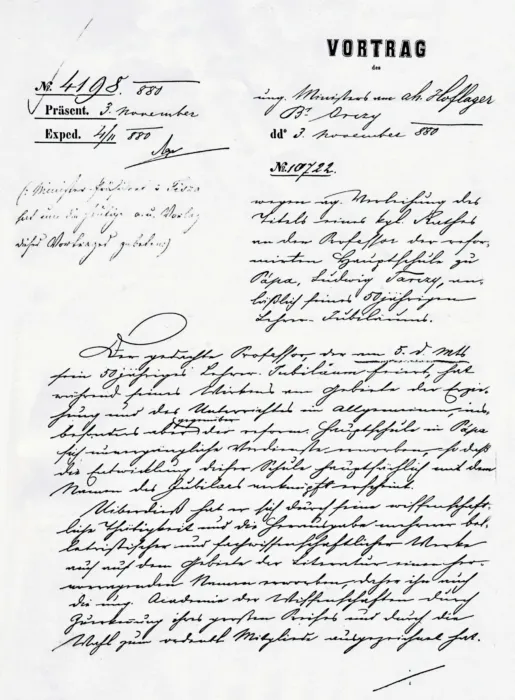 VORTRAG
des
ung. Ministers am ah. Hoflager
Br. Orczy
ddo 3. November 880
No. 4198. 880
Präsent. 3. November
Exped. 4/11 880
No. 10722.
(: Minister-Präsident v. Tisza
hat um die heutige a.u. Vorlage
dieses Vortrages gebeten:)
wegen ag. Verleihung des
Titels eines kgl. Rathes
an den Professor der refor-
mirten Hauptschule zu
Pápa, Ludwig Tarczy, an-
läßlich seines 50jährigen
Lehrer-Jubiläums.
Der gedachte Professor, der am 5. d. Mts
sein 50jähriges Lehrer-Jubiläum feiert, hat
während seines Wirkens am Gebiete der Erzie-
hung und des Unterrichtes im Allgemeinen, ins-
besonders aber der reform. Hauptschule in Pápa
sich unvergängliche Verdienste erworben, so daß
die Entwicklung dieser Schule hauptsächlich mit dem
Namen des Jubilars verknüpft erscheint.
Ueberdieß hat er sich durch seine wissenschaft-
liche Thätigkeit und die Herausgabe mehrerer bel-
letristischer und fachwissenschaftlicher Werke
auch auf dem Gebiete der Literatur einen her-
vorragenden Namen erworben, daher ihn auch
die ung. Academie der Wissenschaften durch
Zuerkennung ihres großen Preises und durch die
Wahl zum ordentl. Mitgliede ausgezeichnet hat.